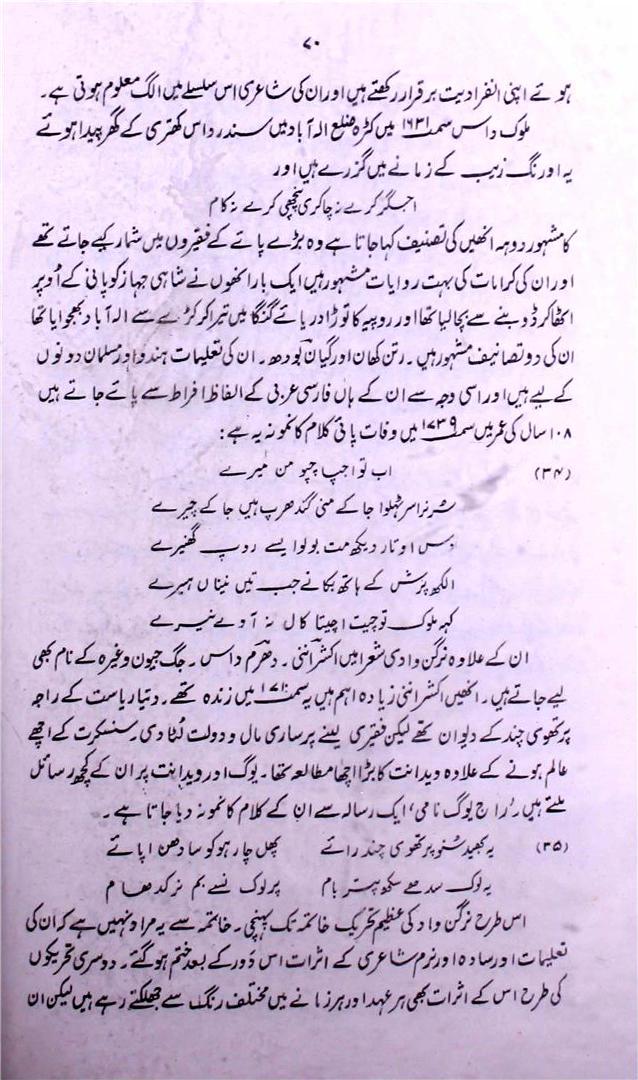 ۷۰
ہوئے اپنی انفرادیت برقرار رکھتے ہیں اور ان کی شاعری اس سلسلے میں الگ معلوم ہوتی ہے۔
ملوک داس سمت ۱۶۳۱ میں کڑہ ضلع الہ آباد میں سندر داس کھتری کے گھر پیدا ہوئے
یہ اورنگ زیب کے زمانے میں گزرے ہیں اور
اجگر کرے نہ چاکری پنچھی کرے نہ کام
کا مشہور دوہہ انھیں کی تصنیف کہا جاتا ہے وہ بڑے پائے کے فقیروں میں شمار کیے جاتے تھے
اور ان کی کرامات کی بہت روایات مشہور ہیں ایک بار انھوں نے شاہی جہاز کو پانی کے اُوپر
اٹھا کر ڈوبنے سے بچا لیا تھا اور روپیہ کا توڑا دریائے گنگا میں تیرا کر کڑے سے الہ آباد بھجوایا تھا
ان کی دو تصانیف مشہور ہیں۔ رتن کھان اور گیان بودھ۔ ان کی تعلیمات ہندو اور مسلمان دونوں
کے لیے ہیں اور اسی وجہ سے ان کے ہاں فارسی عربی کے الفاظ افراط سے پائے جاتے ہیں
۱۰۸ سال کی عمر میں سمت ۱۷۳۹ میں وفات پائی کلام کا نمونہ یہ ہے:
(۳۴) اب تو اجپ جپو من میرے
سُر نر اسر ٹہلوا جا کے منی گندھرپ ہیں جا کے چیرے
دس اوتار دیکھ مت بولو ایسے روپ گھنیرے
الکھ پرش کے ہاتھ بکانے جب تیں نیناں ہیرے
کہہ ملوک تو چیت اچیتا کال نہ آوے نیرے
ان کے علاوہ نرگن وادی شعرا میں اکشر اننی۔ دھرم داس۔ جگ جیون وغیرہ کے نام بھی
لیے جاتے ہیں۔ انھیں اکشر اننی زیادہ اہم ہیں یہ سمت ۱۷۱۰ میں زندہ تھے۔ دتیا ریاست کے راجہ
پرتھوی چند کے دیوان تھے لیکن فقیری لینے پر ساری مال و دولت لُٹا دی۔ سنسکرت کے اچھے
عالم ہونے کے علاوہ ویدانت کا بڑا اچھا مطالعہ تھا۔ یوگ اور ویدانت پر ان کے کچھ رسائل
ملتے ہیں۔ 'راج یوگ نامی' ایک رسالہ سے ان کے کلام کا نمونہ دیا جاتا ہے۔
(۳۵) یہ بھید سُنو پرتھوی چند رائے پھل چار ہو کو سادھن اپائے
یہ لوک سدھے سکھ پتر بام پر لوک نسے بم نرک دھام
اس طرح نرگن واد کی عظیم تحریک خاتمہ تک پہنچی۔ خاتمہ سے یہ مراد نہیں ہے کہ ان کی
تعلیمات اور سادہ اور نرم شاعری کے اثرات اس دَور کے بعد ختم ہو گئے۔ دوسری تحریکوں
کی طرح اس کے اثرات بھی ہر عہد اور ہر زمانے میں مختلف رنگ سے جھلکتے رہے ہیں لیکن ان